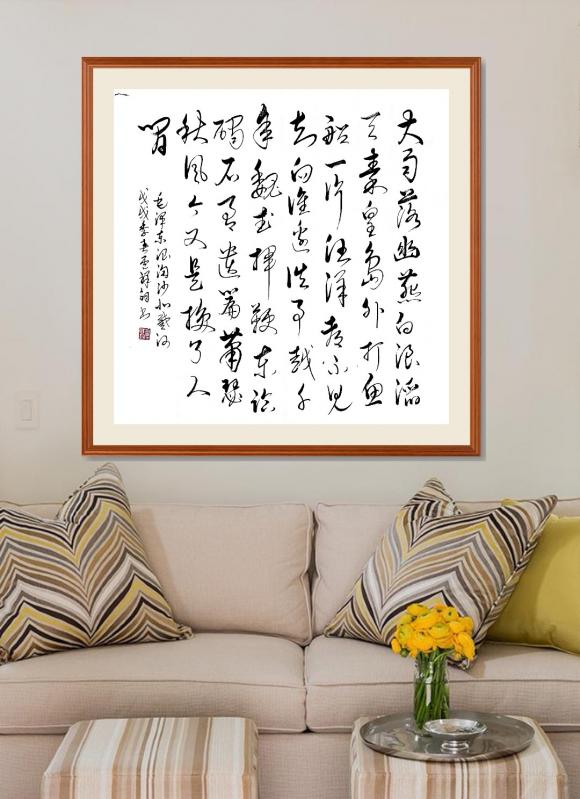 大雨落幽燕白浪滔
天秦皇岛外打鱼
船一片汪洋都不见
知向谁边往事越千
年魏武挥鞭东临
碣石有遗篇萧瑟
秋风今又是换了人
间
毛泽东浪淘沙北戴河
戊戌季春